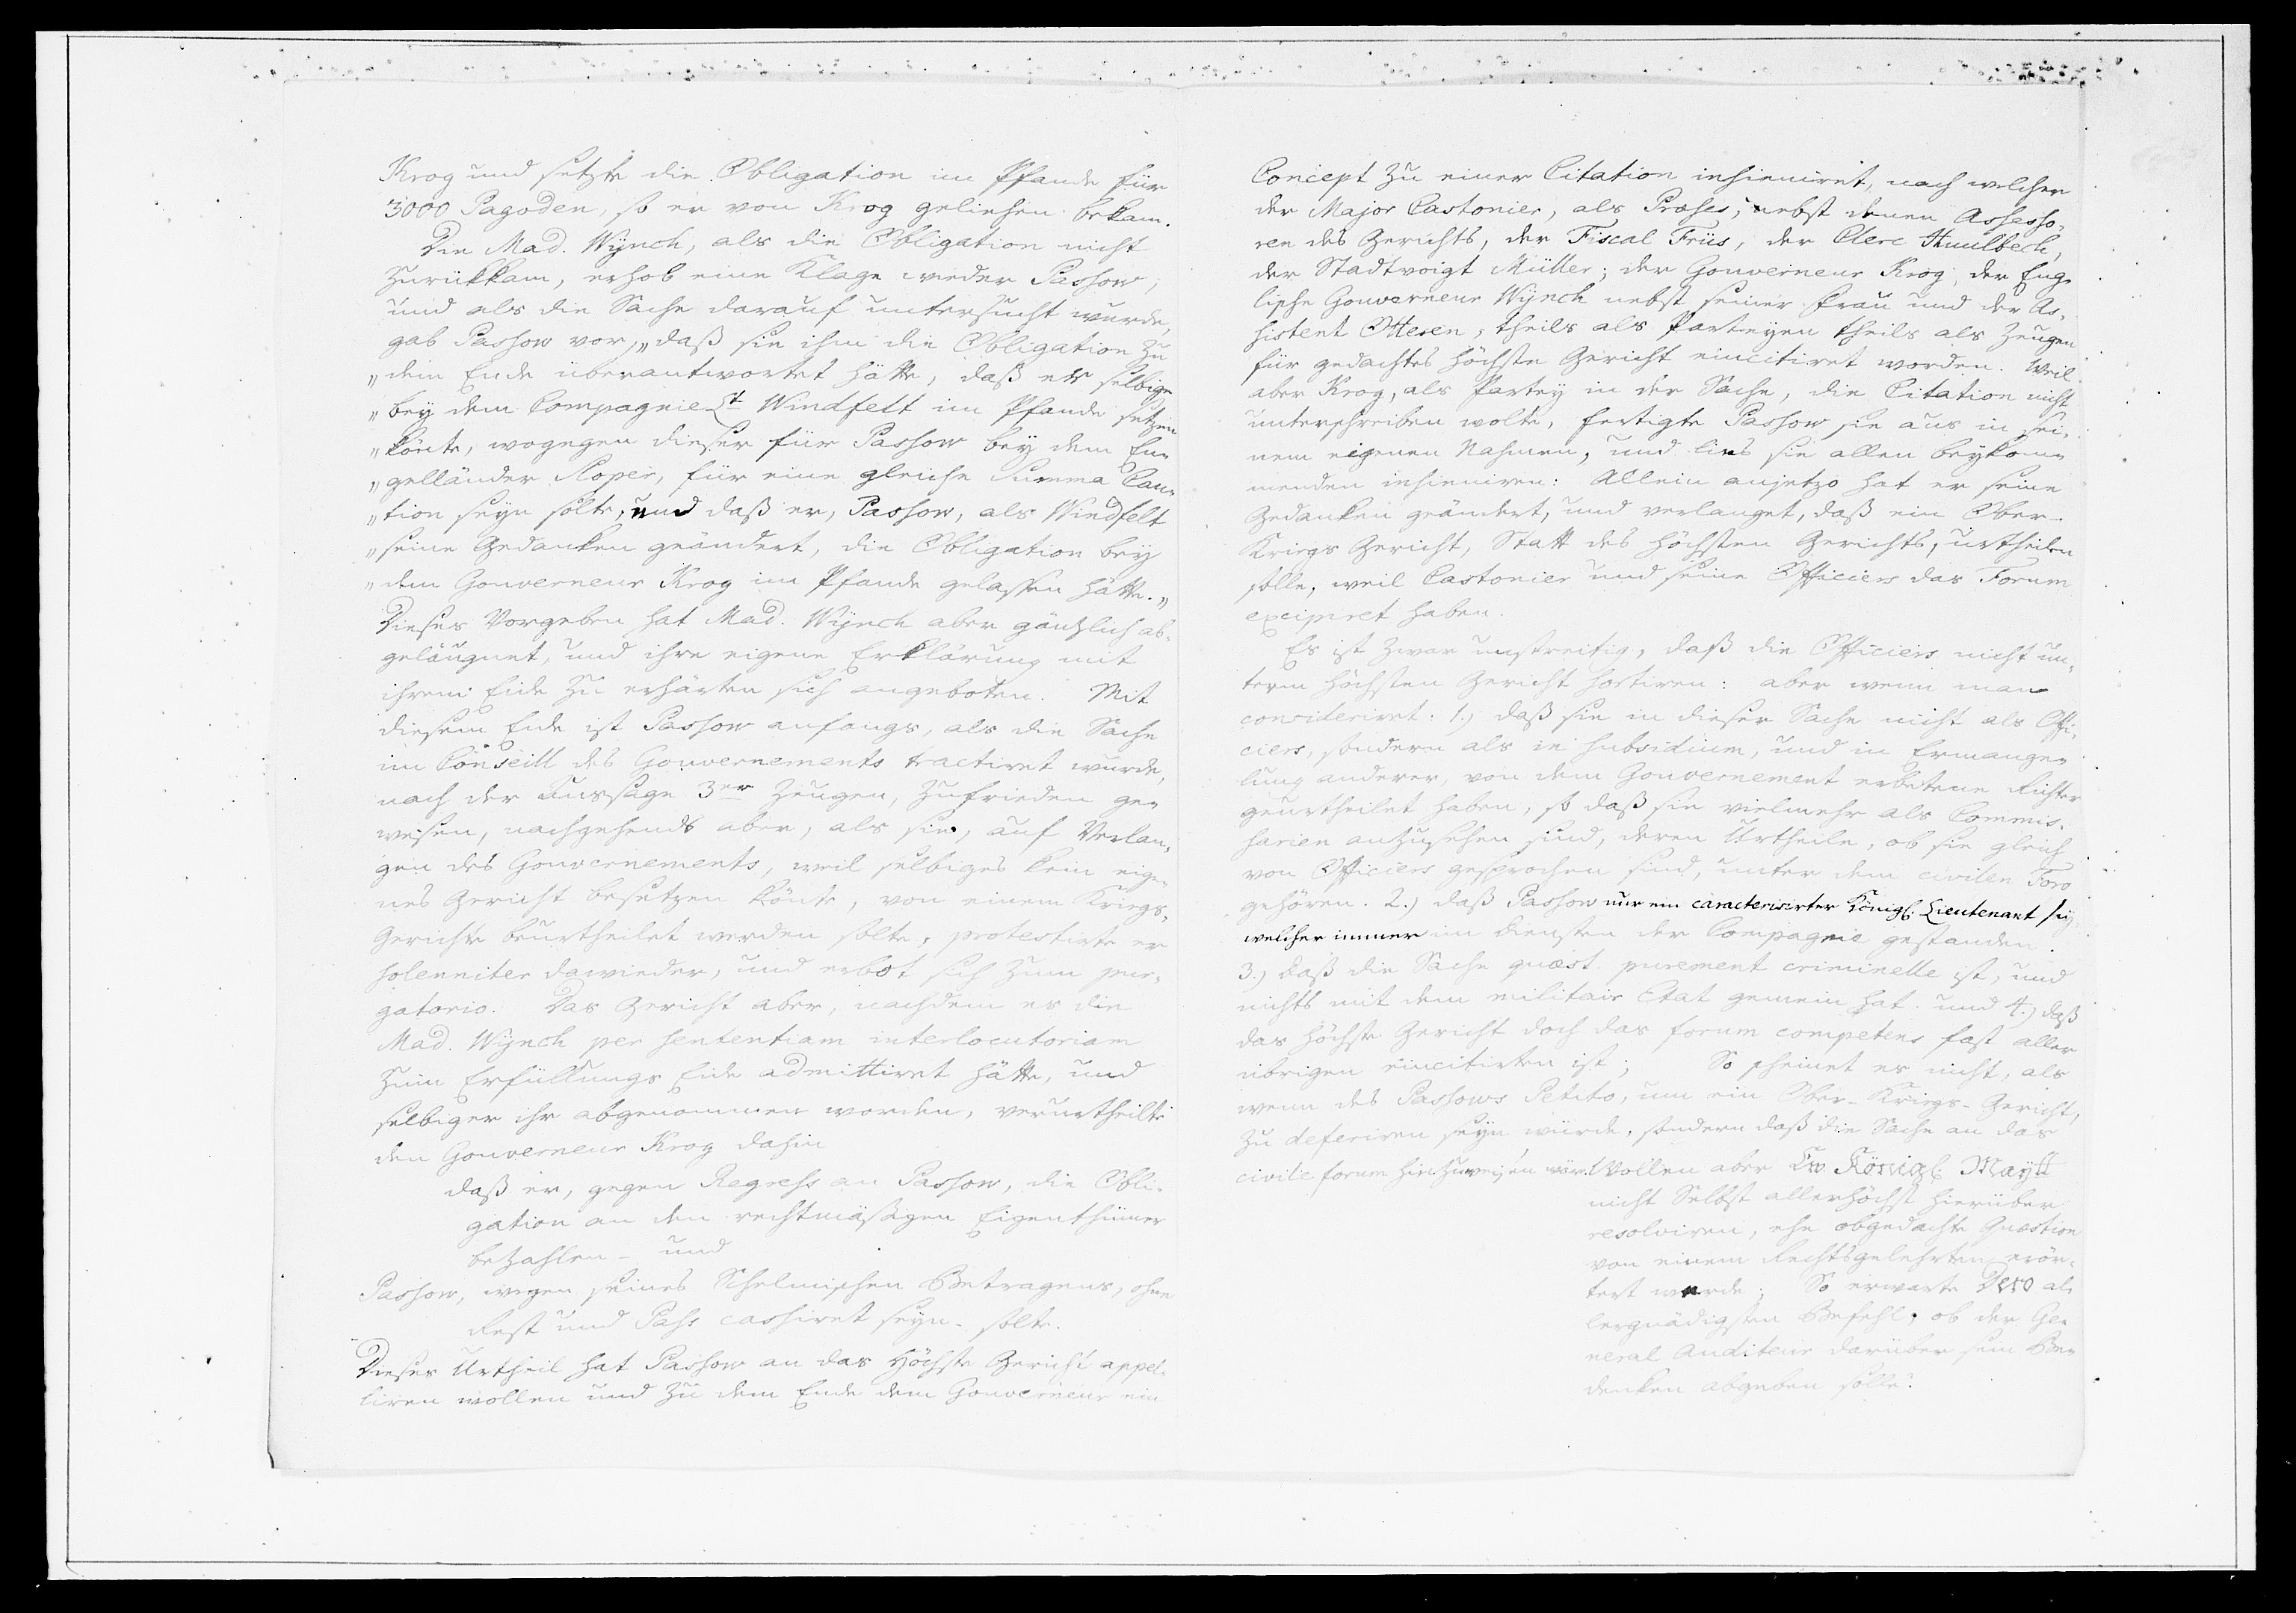 Krog und setzte die Obligation im Pfande für
3000 Pagoden, so er von Krog geliehen bekam.
Die Mad. Wÿnch, als die Obligation nicht
zurükkam, erhob eine Klage wieder Passow,
und als die Sache darauf untersucht wurde,
gab Passow vor, „daß sie ihm die Obligation zu
„dem Ende überantwortet hätte, daß er selbige
„bey dem Compagnie Lt Windfelt im Pfande setzen
„könte, wogegen dieser für Passow bey dem En„
„gelländer Roper, für eine gleiche Summa Cau„
„tion seyn solte, und daß er, Passow, als Windfelt
„seine Gedanken geändert, die Obligation bey
„dem Gouverneur Krog im Pfande gelassen hätte.„
Dieses Vorgeben hat Mad. Wÿnch aber gänzlich ab„
geläugnet, und ihre eigene Erklärung mit
ihrem Eide zu erhärten sich angeboten. Mit
diesem Eide ist Passow anfangs, als die Sache
im Conseill des Gouvernements tractiret wurde,
nach der Aussage 3er Zeugen, zufrieden ge„
wesen, nachgehends aber, als sie, auf Verlan„
gen des Gouvernements, weil selbiges kein eige„
nes Gericht besetzen könte, von einem Kriegs„
Gerichte beurtheilet werden solte, protestirte er
solenniter dawieder, und erbot sich zum pur„
gatorio. Das Gericht aber, nachdem es die
Mad. Wÿnch per sententiam interlocutoriam
zum Erfüllungs Eide admittiret hätte, und
selbiger ihr abgenommen worden, verurtheilte
den Gouverneur Krog dahin
daß er, gegen Regress an Passow, die Obli„
gation an den rechtmäßigen Eigenthümer
bezahlen - und
Passow, wegen seines Schelmischen Betragens, ohne
Rest und Pass cassiret seyn - solte.
Dieses Urtheil hat Passow an das Höchste Gericht appel„
liren wollen und zu dem Ende dem Gouverneur ein
Concept zu einer Citation insinuiret, nach welcher
der Major Castonier, als Præses, nebst denen Assesso„
ren des Gerichts, der Fiscal Früs, der Clerc
der Stadtvoigt Müller; der Gouverneur Krog, der Eng„
lische Gouverneur Wÿnch nebst seiner Frau und der As„
sistent Ottesen, theils als Parteyen theils als Zeugen
für gedachtes Höchste Gericht eincitiret worden. Weil
aber Krog, als Partey in der Sache, die Citation nicht
unterschreiben wolte, fertigte Passow sie aus in sei„
nem eigenen Nahmen, und lies sie allen beykom„
menden insinuiren: Allein anjetzo hat er seine
Gedanken geändert, und verlanget, daß ein Ober-
Kriegs Gericht, Statt des Höchsten Gerichts, urtheilen
solle, weil Castonier und seine Officiers das Forum
excipiret haben.
Es ist zwar unstreitig, daß die Officiers nicht un„
term Höchsten Gericht sortiren: aber wenn man
consideriret: 1.) daß sie in dieser Sache nicht als Offi„
ciers, sondern als in subsidium, und in Ermange„
lung anderer, von dem Gouvernement erbetene Richter
geurtheilet haben, so daß sie vielmehr als Commis„
sarien anzusehen sind, deren Urtheile, ob sie gleich
von Officiers gesprochen sind, unter dem civilen Foro
gehören. 2.) daß Passow nur ein caracterisirter Königl. Lieutenant sey,
welcher immer im Diensten der Compagnie gestanden.
3.) daß die Sache quæst. purement criminelle ist, und
nichts mit dem militair Etat gemein hat. und 4.) daß
das Höchste Gericht doch das forum competens fast aller
übrigen eincitirten ist; So scheinet es nicht, als
wenn des Passows Petito, um ein Ober-Kriegs-Gericht,
zu deferiren seyn würde, sondern daß die Sache an das
civile forum hinzuweisen wäre. Wollen aber Ew. Königl. Maÿtt
nicht Selbst allerhöchst hierüber
resolviren, ehe obgedachte Question
von einem Rechtsgelehrten erör„
tert werde; So erwarte Dero al„
lergnädigsten Befehl, ob der Ge„
neral Auditeur darüber sein Be„
denken abgeben solle?